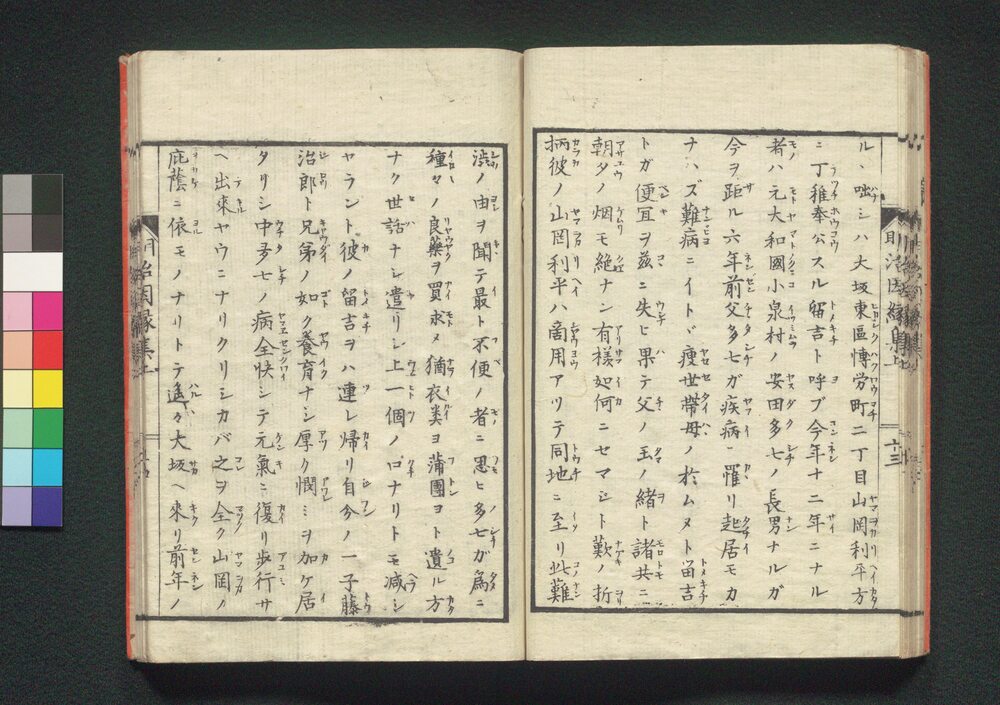 ル、咄シハ大坂東區博労町二丁目山岡利平方
ニ丁稚奉公スル留吉ト呼ブ今年十二年ニナル
者ハ元大和國小泉村ノ安田多七ノ長男ナルガ
今ヲ距ル六年前父多七ガ疾病ニ罹リ起居モカ
ナハズ難病ニイトド瘦世帯母ノ於ムメト留吉
トガ便宜ヲ茲ニ失ヒ果テ父ノ玉ノ緒ト諸共ニ
朝夕ノ烟モ絶ナン有様如何ニセマシト歎ノ折
柄彼ノ山岡利平ハ商用アリテ同地ニ至リ此難
澁ノ由ヲ聞テ最ト不便ノ者ニ思ヒ多七ガ為ニ
種々ノ良藥ヲ買求メ猶衣类ヨ蒲團ヨト遺ル方
ナク世話ナシ遣リシ上一個ノ口ナリトモ减シ
ヤラント彼ノ留吉ヲハ連レ帰リ自分ノ一子藤
治郎ト兄弟ノ如ク養育ナシ厚ク憫ミヲ加ケ居
タリシ中多七ノ病全快シテ元氣ニ復リ歩行サ
ヘ出來ヤウニナリクリシカバ之ヲ全ク山岡ノ
庇蔭ニ依モノナリトテ遙々大坂ヘ來リ前年ノ
明治因縁集上
十三
明治因縁集上